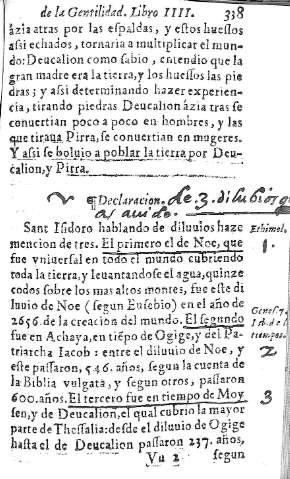 de la Gentilidad. Libro IIII. 338
âzia atras por las espaldas, y estos huessos
assi echados, tornaria a multiplicar el mun-
do: Deucalion como sabio, entendio que la
gran madre era la tierra, y los huessos las pie
dras; y assi determinando hazer experien-
cia, tirando piedras Deucalion âzia tras se
conuertian poco a poco en hombres, y las
que tiraua Pirra, se conuertian en mugeres.
Y assi se boluio a poblar la tierra por Deu-
calion, y Pirra.
¶ Declaracion. de 3. dilubios q
as auido.
Sant Isidoro hablando de diluuios haze
mencion de tres. El primero el de Noe, que
fue vniuersal en todo el mundo cubriendo
toda la tierra, y leuantandose el agua, quinze
codos sobre los mas altos montes, fue este di
luuio de Noe (segun Eusebio) en el año de
2656. de la creacion del mundo. El segundo
fue en Achaya, en tiẽpo de Ogige, y del Pa-
triarcha Iacob: entre el diluuio de Noe, y
este passaron, 546. años, segun la cuenta de
la Biblia vulgata, y segun otros, passaron
600. años. El tercero fue en tiempo de Moy
sen, y de Deucalion, el qual cubrio la mayor
parte de Thessalia: desde el diluuio de Ogige
hasta el de Deucalion passaron 237. años,
Vu 2 segun
Ethimol.
1.
Genes. 7.
tiempos.
2
3